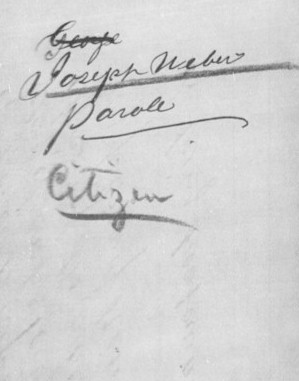 George
Joseph Weber
Parole
Citizen